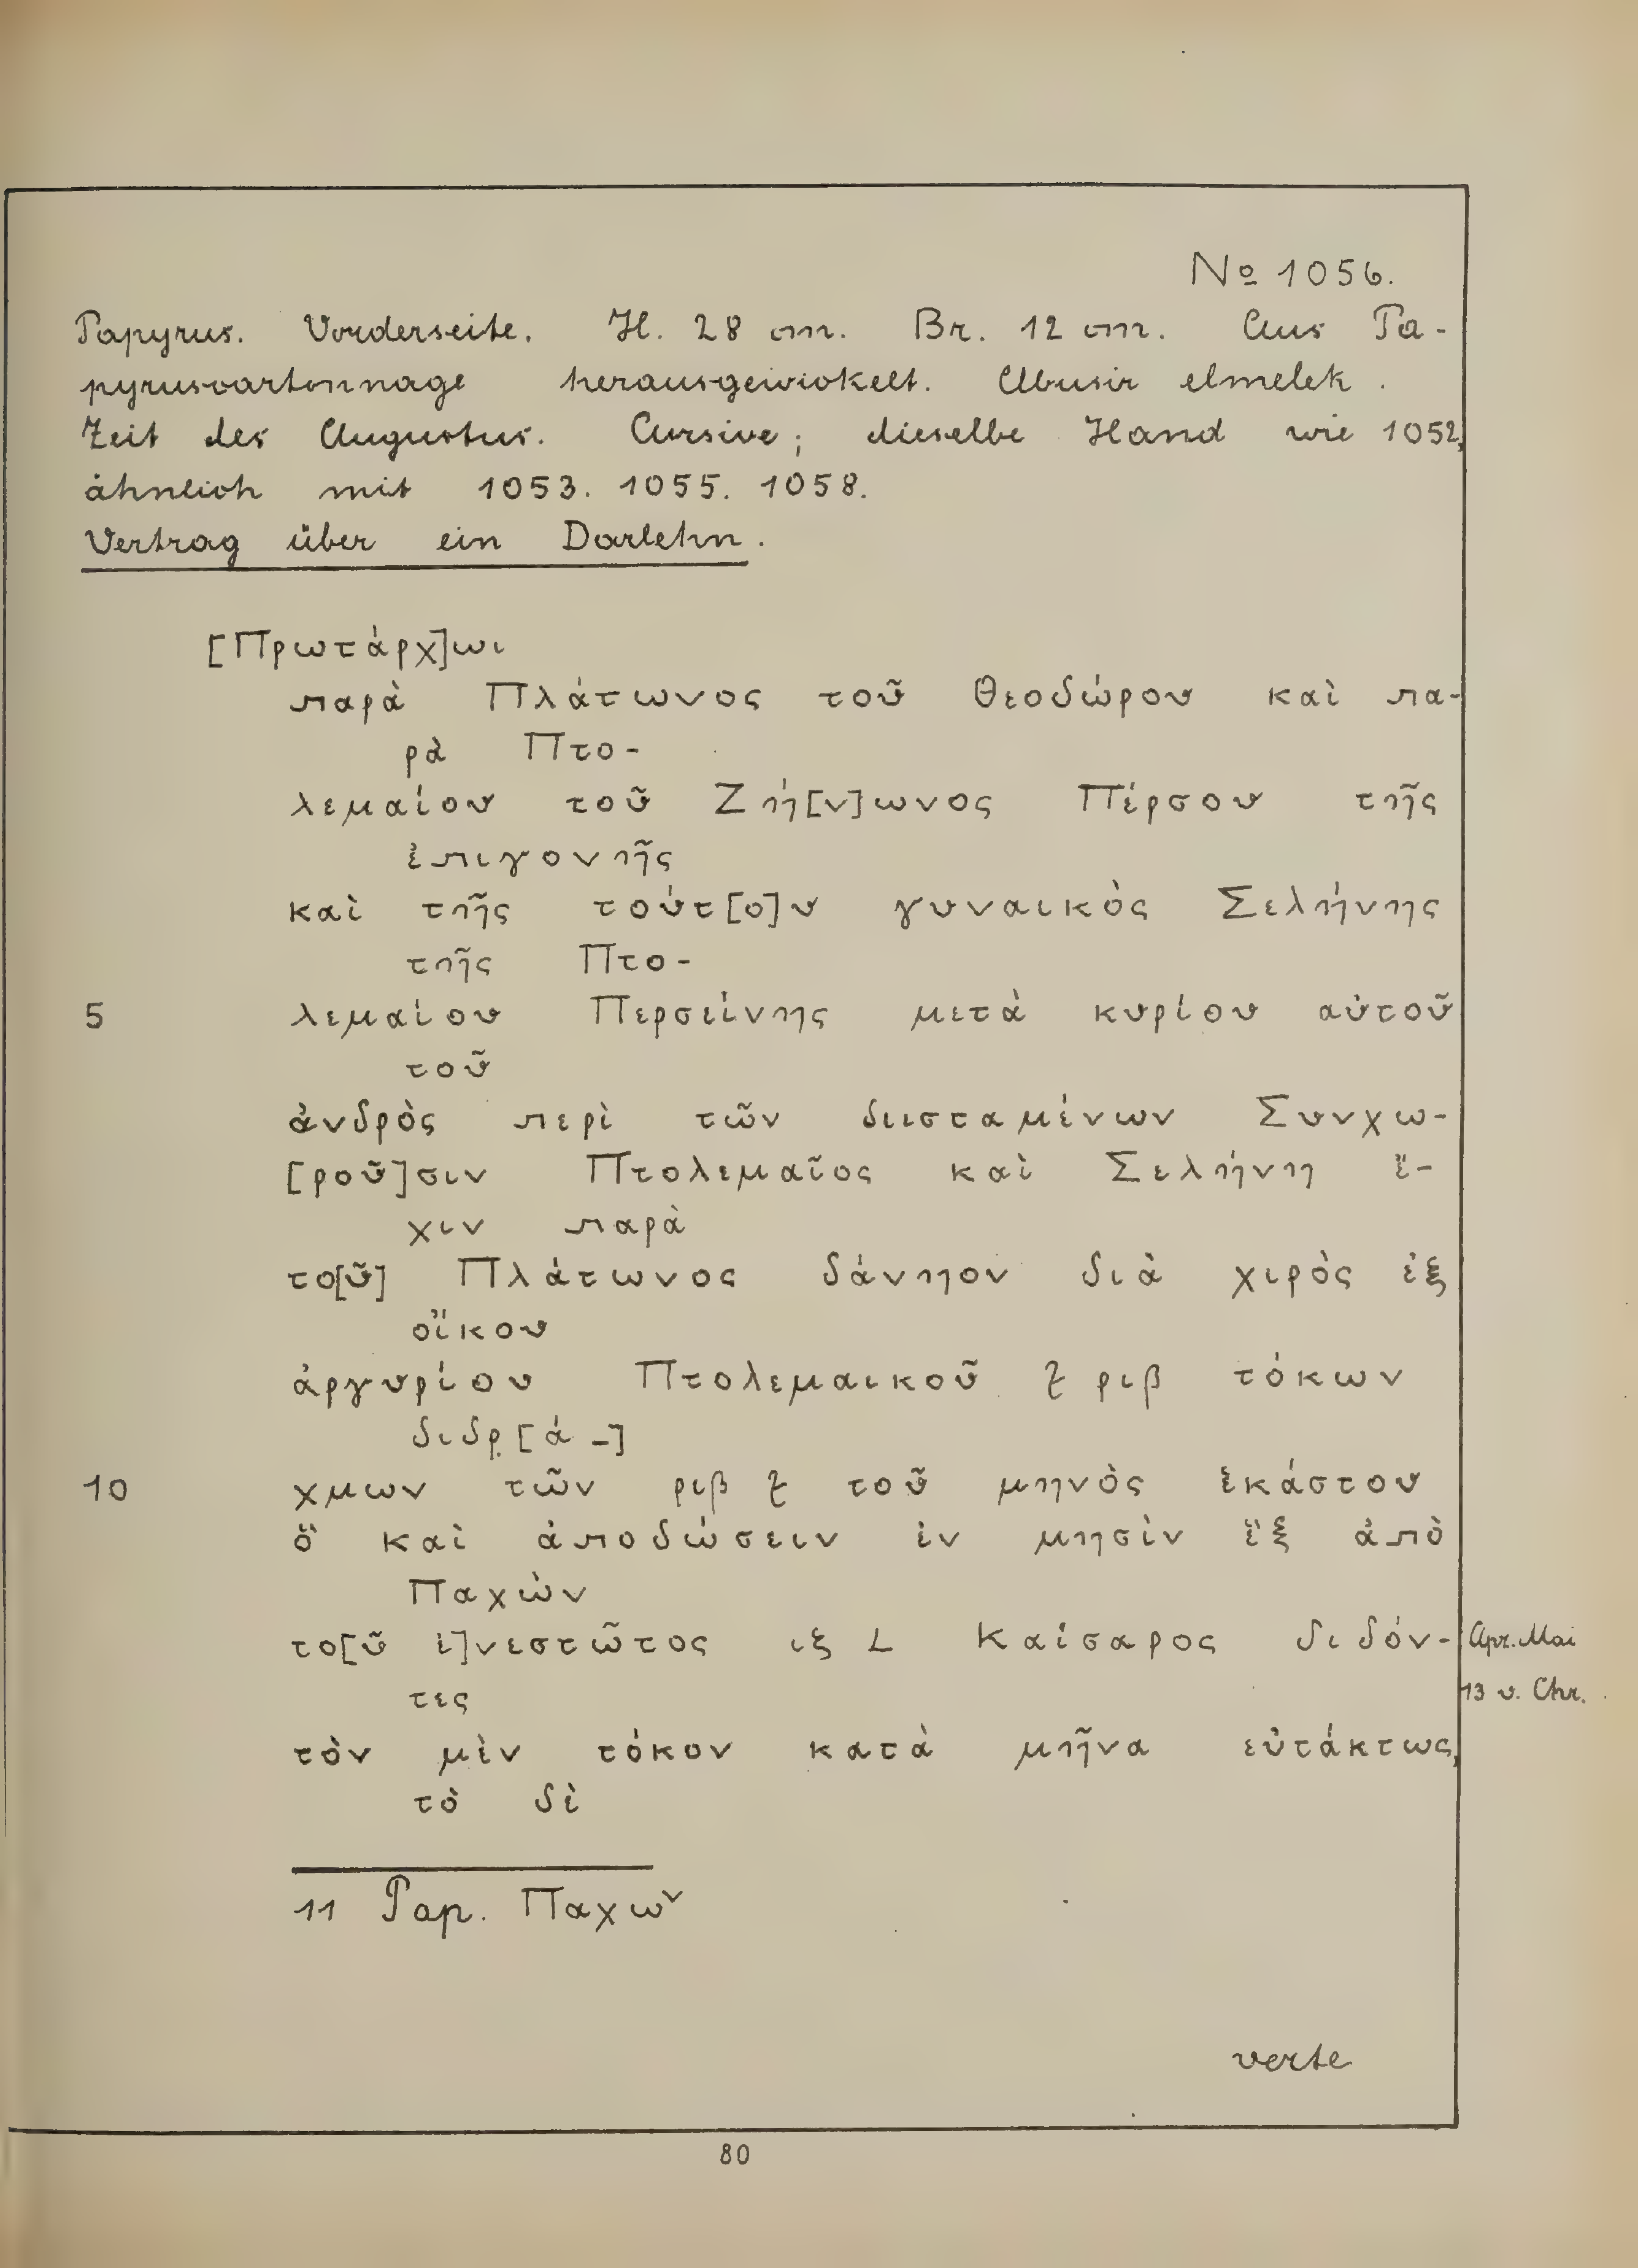 No 1056.
Papyrus. Vorderseite. H. 28 cm. Br. 12 cm. Aus Pa-
pyruscartonnage herausgewickelt. Abusir elmelek.
Zeit des Augustus. Cursive; dieselbe Hand wie 1052,
ähnlich mit 1053. 1055. 1058.
Vertrag über ein Darlehn.
[Πρωτάρχ]ωι
παρὰ Πλάτωνος τοῦ Θεοδώρου καὶ πα-
ρὰ Πτο-
λεμαίου τοῦ Ζή[ν]ωνος Πέρσου τῆς
ἐπιγονῆς
καὶ τῆς τούτ[ο]υ γυναικὸς Σελήνης
τῆς Πτο-
5 λεμαίου Περσείνης μετὰ κυρίου αὐτοῦ
τοῦ
ἀνδρὸς περὶ τῶν διεσταμένων Συνχω-
[ροῦ]σιν Πτολεμαῖος καὶ Σελήνη ἔ-
χιν παρὰ
το[ῦ] Πλάτωνος δάνηον διὰ χιρὸς ἐξ
οἴκου
ἀργυρίου Πτολεμαικοῦ ⳨ ριβ τόκων
διδρ̣[ά-]
10 χμων τῶν ριβ ⳨ τοῦ μηνὸς ἑκάστου
ὃ καὶ ἀποδώσειν ἐν μησὶν ἓξ ἀπὸ
Παχὼν
το[ῦ ἐ]νεστῶτος ιξ L Καίσαρος διδόν-
τες
Apr. Mai
13 v. Chr.
τὸν μὲν τόκον κατὰ μῆνα εὐτάκτως,
τὸ δὲ
11 Pap. Παχωᵛ
verte
80